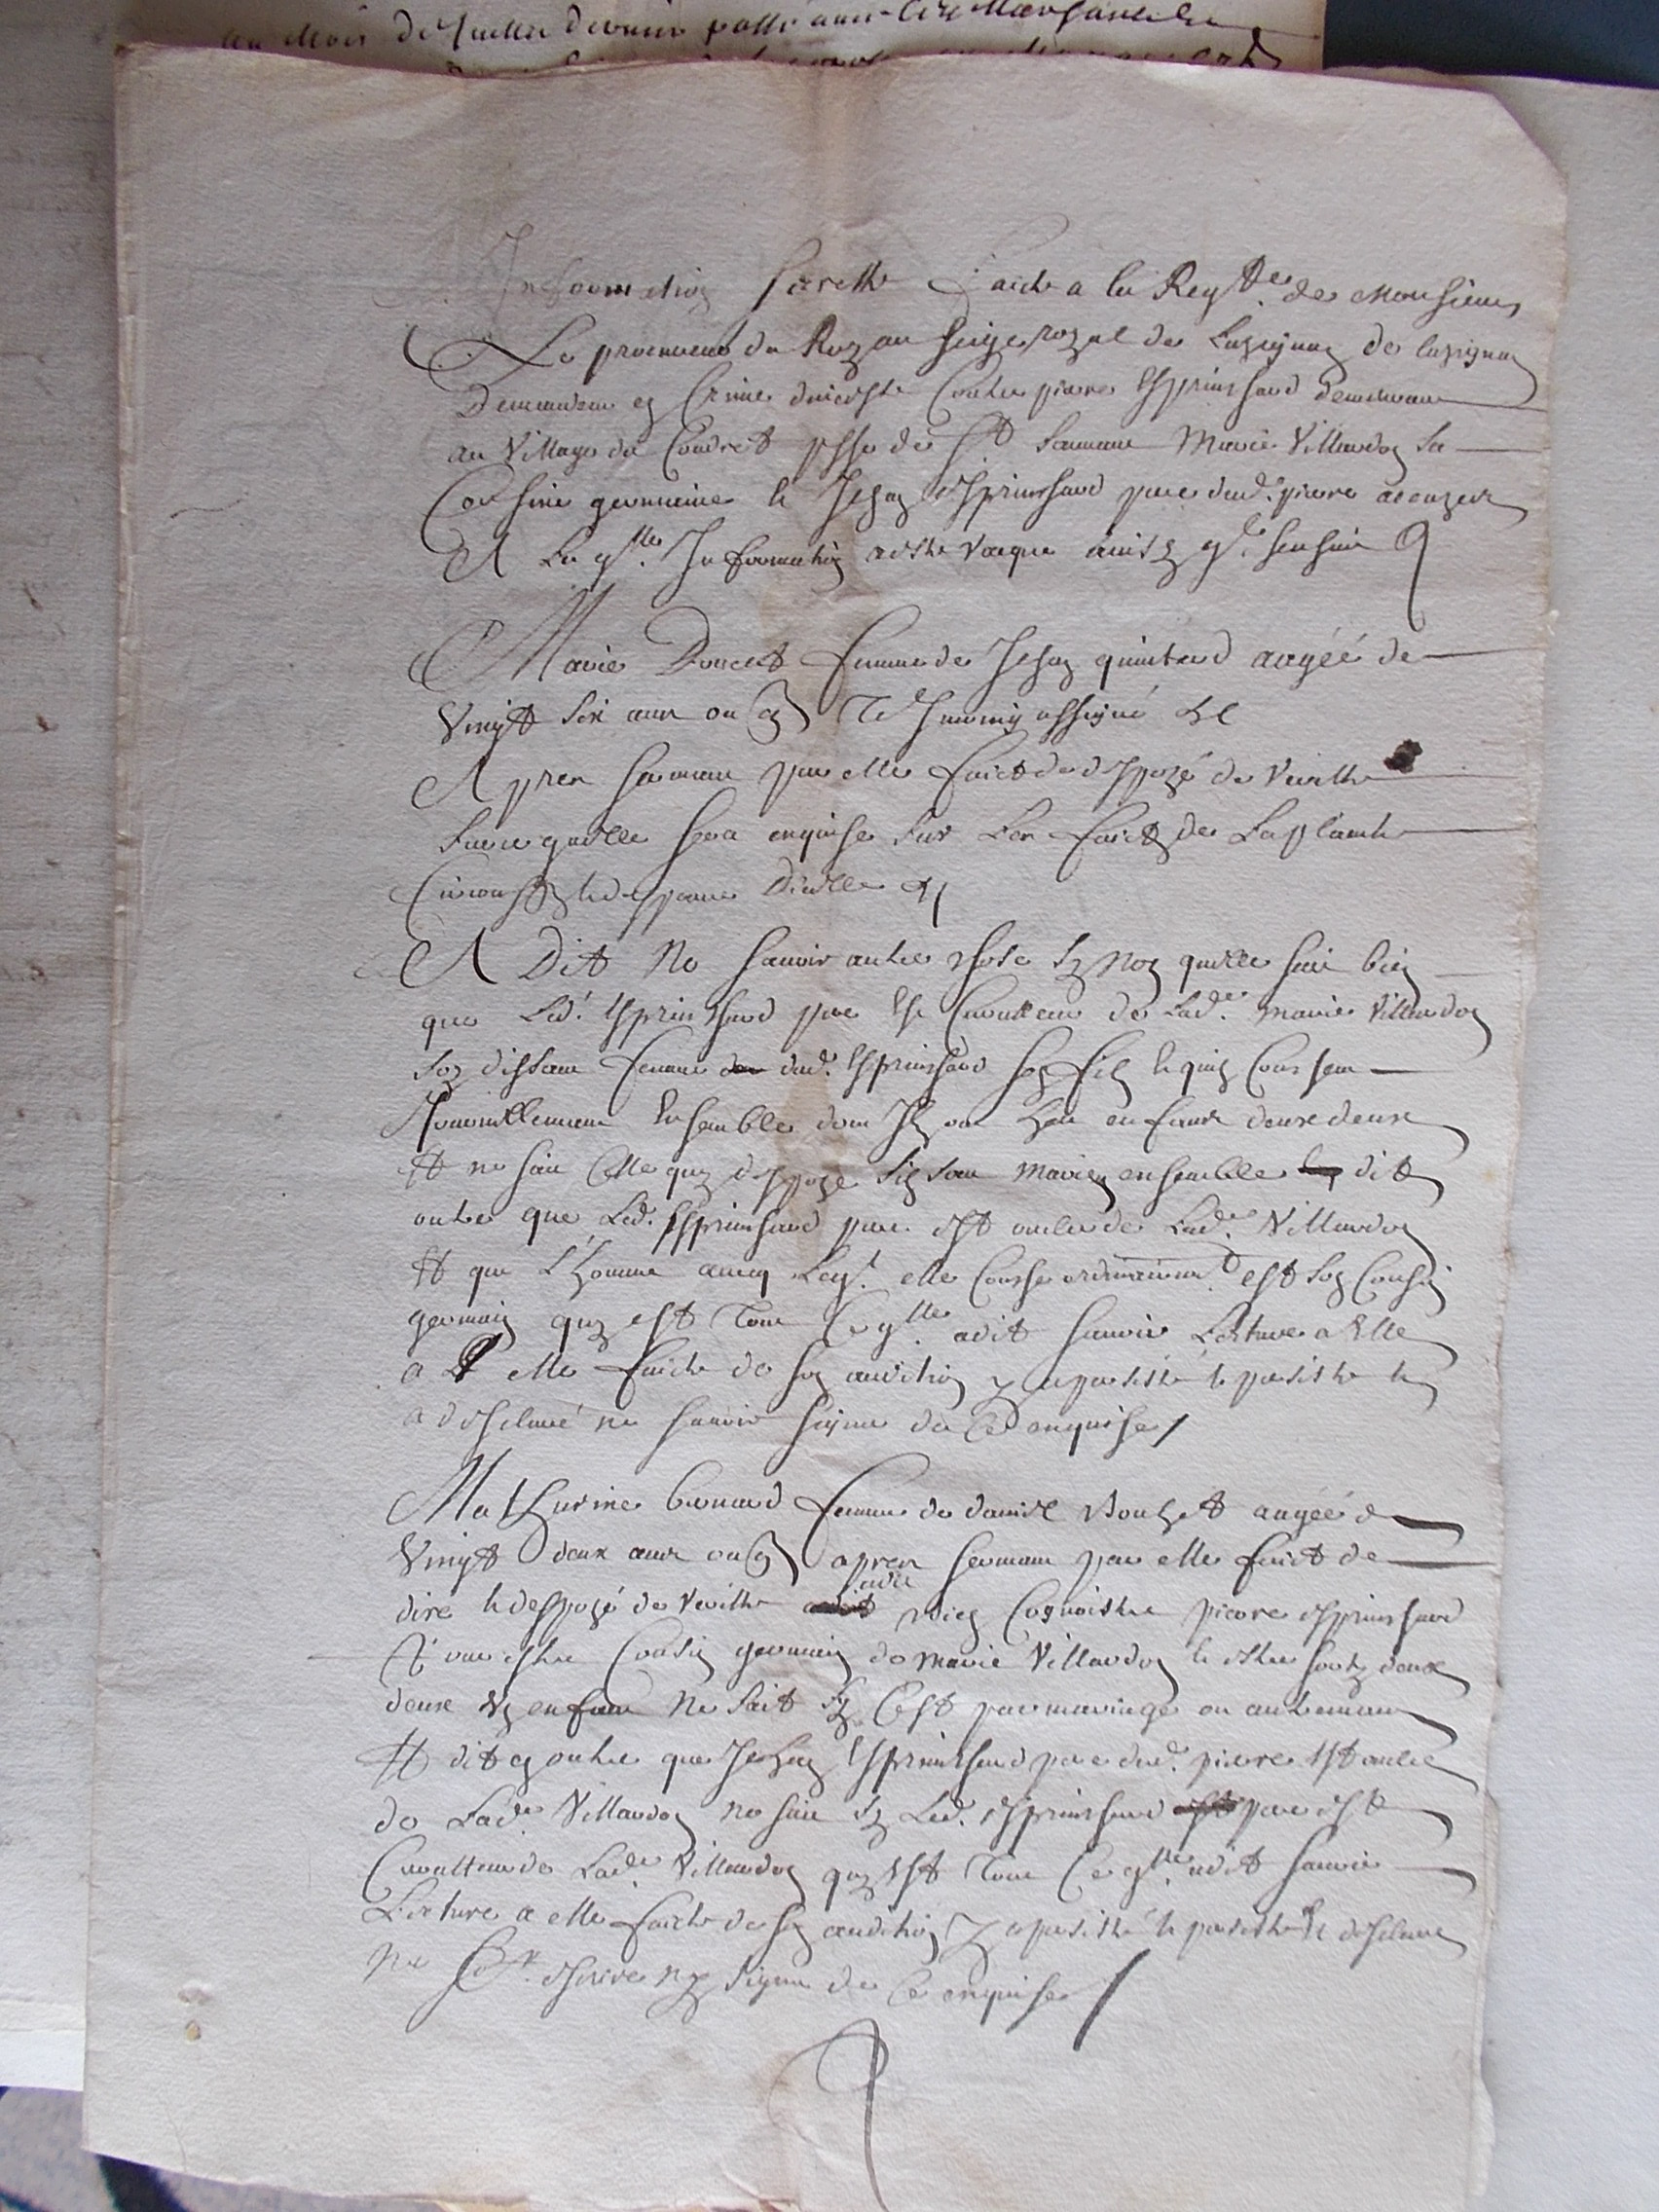 au mois de Juillet dernier passé avec
Information secrette faicte a la Reqte de Monsieur
Le procureur du Roy au siege royal de Luzignan de luzignan
Demandeur en Crime dinceste Contre pierre Esprinchard demeurant
au Village du Coudret psse de St Sauvant Marie Villandon sa
Cousine germaine et Jehan Esprinchard pere dud. pierre accuzez
A La qlle Information a esté vacqué ainsy q sensuit
Marie Doucet femme de Jehan quintard aagéé de
Vingt six ans ou en Tesmoing assigné
Apres serment par elle faict de depozé de Veritté
Sur ce quelle sera enquise sur Les faictz de La plainte
Circonstz et despances Dicelle
A Dit Ne scavoir autre chose sy non quelle scait bien
que Led. Esprinchard pere est Curatteur de Lad. Marie Villandon
soy dissant femme dud. Esprinchard son filz et quilz Coussent
Journellement Ensemble dont Ilz ont heu enfans deux deux
Et ne scait Celle quy depoze silz sont mariez ensemble dit
outre que Led. Esprinchard pere est oncle de Lad. Villandon
Et que Lhomme avecq Leql elle Cousse ordinairemt est son Cousin
germain quy est Tout Ce qlle a dit scavoir Lecture a Elle
a elle faicte de son audition y a persisté et persiste et
a desclaré ne scavoir signer de Ce enquise
Mathurine bernard femme de daniel Bouhet aagéé de
Vingt deux ans ou en apres serment par elle faict de
dire et depozé de Veritté a dit bien Cognoistre pierre Esprinchard
pour estre Cousin germain de Marie Villandon et estre heu deux
deux enfans Ne scait sy Cest par mariage ou autrement
Et dit en outre que Jehan Esprinchard pere dud. pierre est oncle
de Lad. Villandon ne scait sy Led. Esprinchard pere est
Curatteur de Lad. Villandon quy est Tout Ce qlle a dit scavoir
Lecture a elle faicte de son audition y a persisté et persiste Et desclaré
ne Sr escrire ny signer de Ce enquise